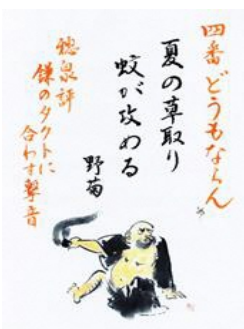 四番 どうもならん
夏の草取り
蚊が攻める
野菊
泉評
鎌のタクトに
合わす撃音